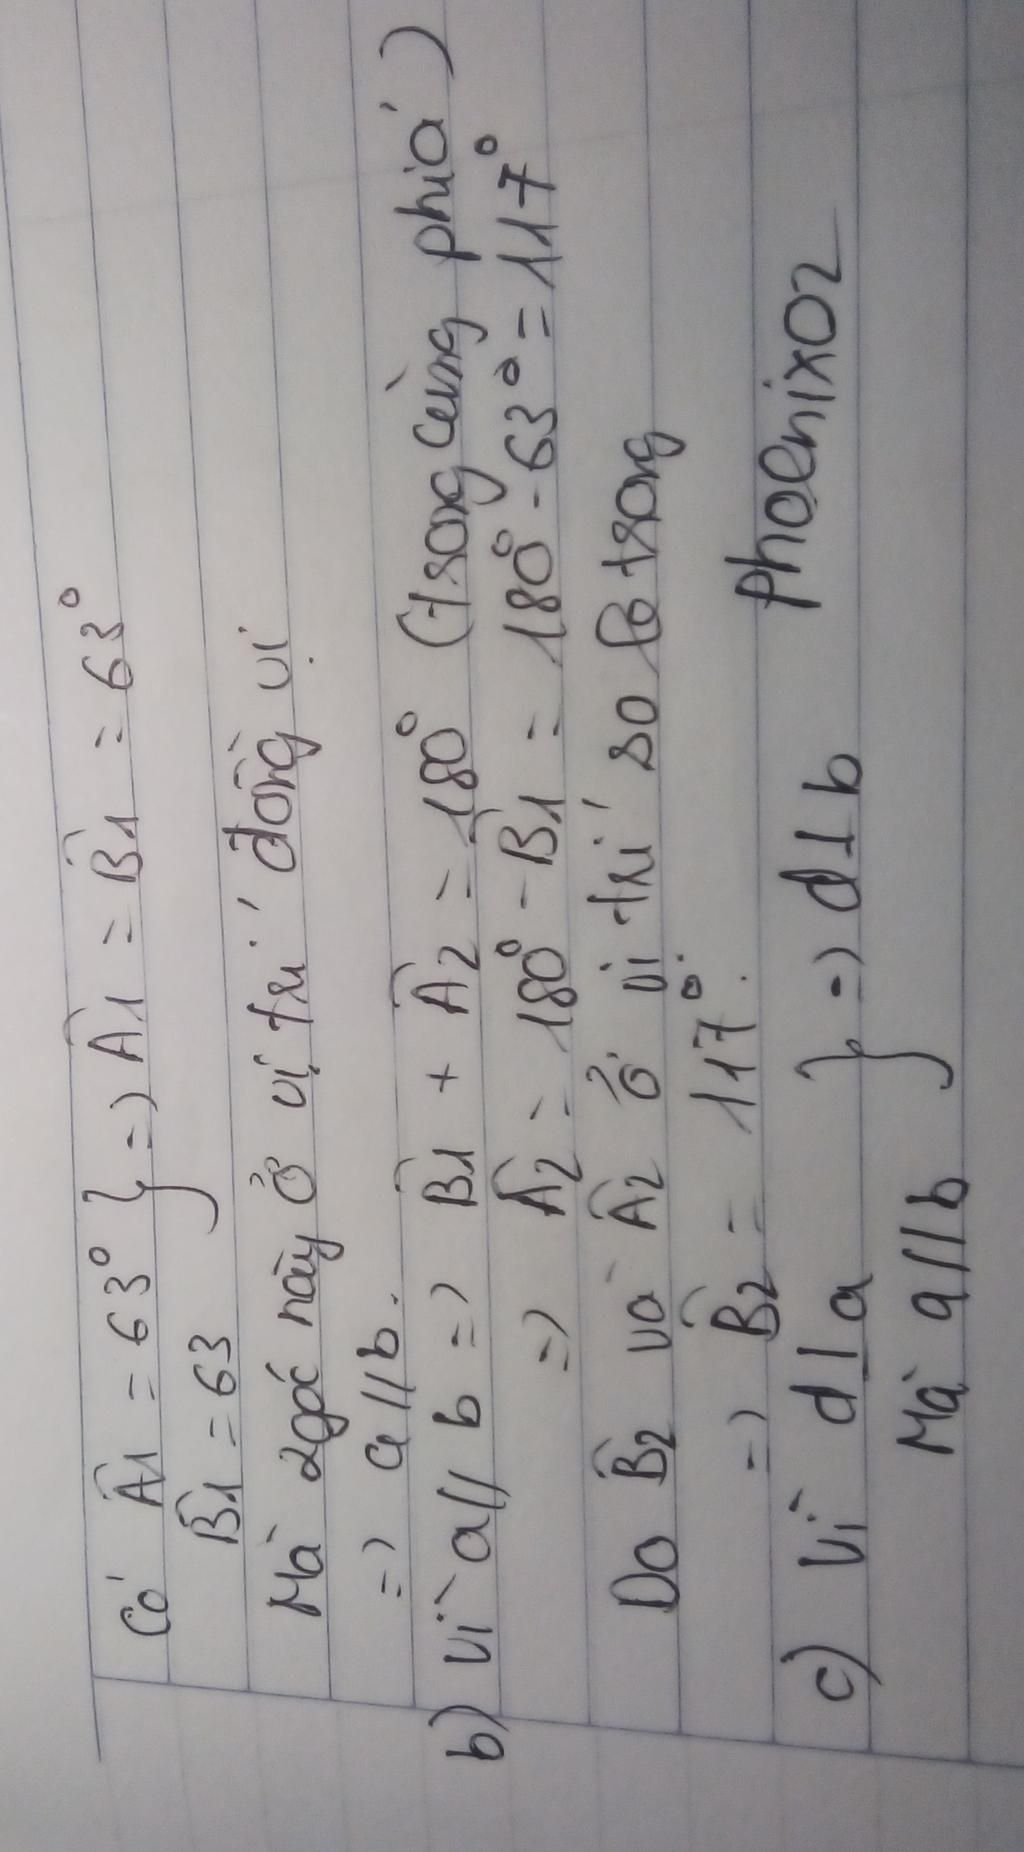 Có Â1 = 63° } => Â1 = B̂1 = 63°
B̂1 = 63
Mà 2góc này ở vị trí đồng vị
=> a//b.
b) Vì a// b => B̂1 + Â2 = 180° (trong cùng phía)
=> Â2 = 180° - B̂1 = 180° - 63° = 117°
Do B̂2 và Â2 ở vị trí so le trong
=> B̂2 = 117°.
c) Vì d⊥a } => d⊥b Phoenixo2
Mà a//b